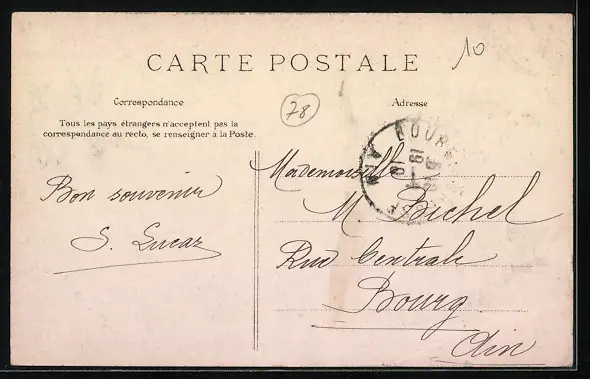 CARTE POSTALE
10
Correspondance
78
Adresse
Tous les pays étrangers n'acceptent pas la
correspondance au recto, se renseigner à la Poste.
Bon souvenir
S. Lucas
Mademoiselle
M. Bichel
Rue Centrale
Bourg
Ain
BOURG
AIN